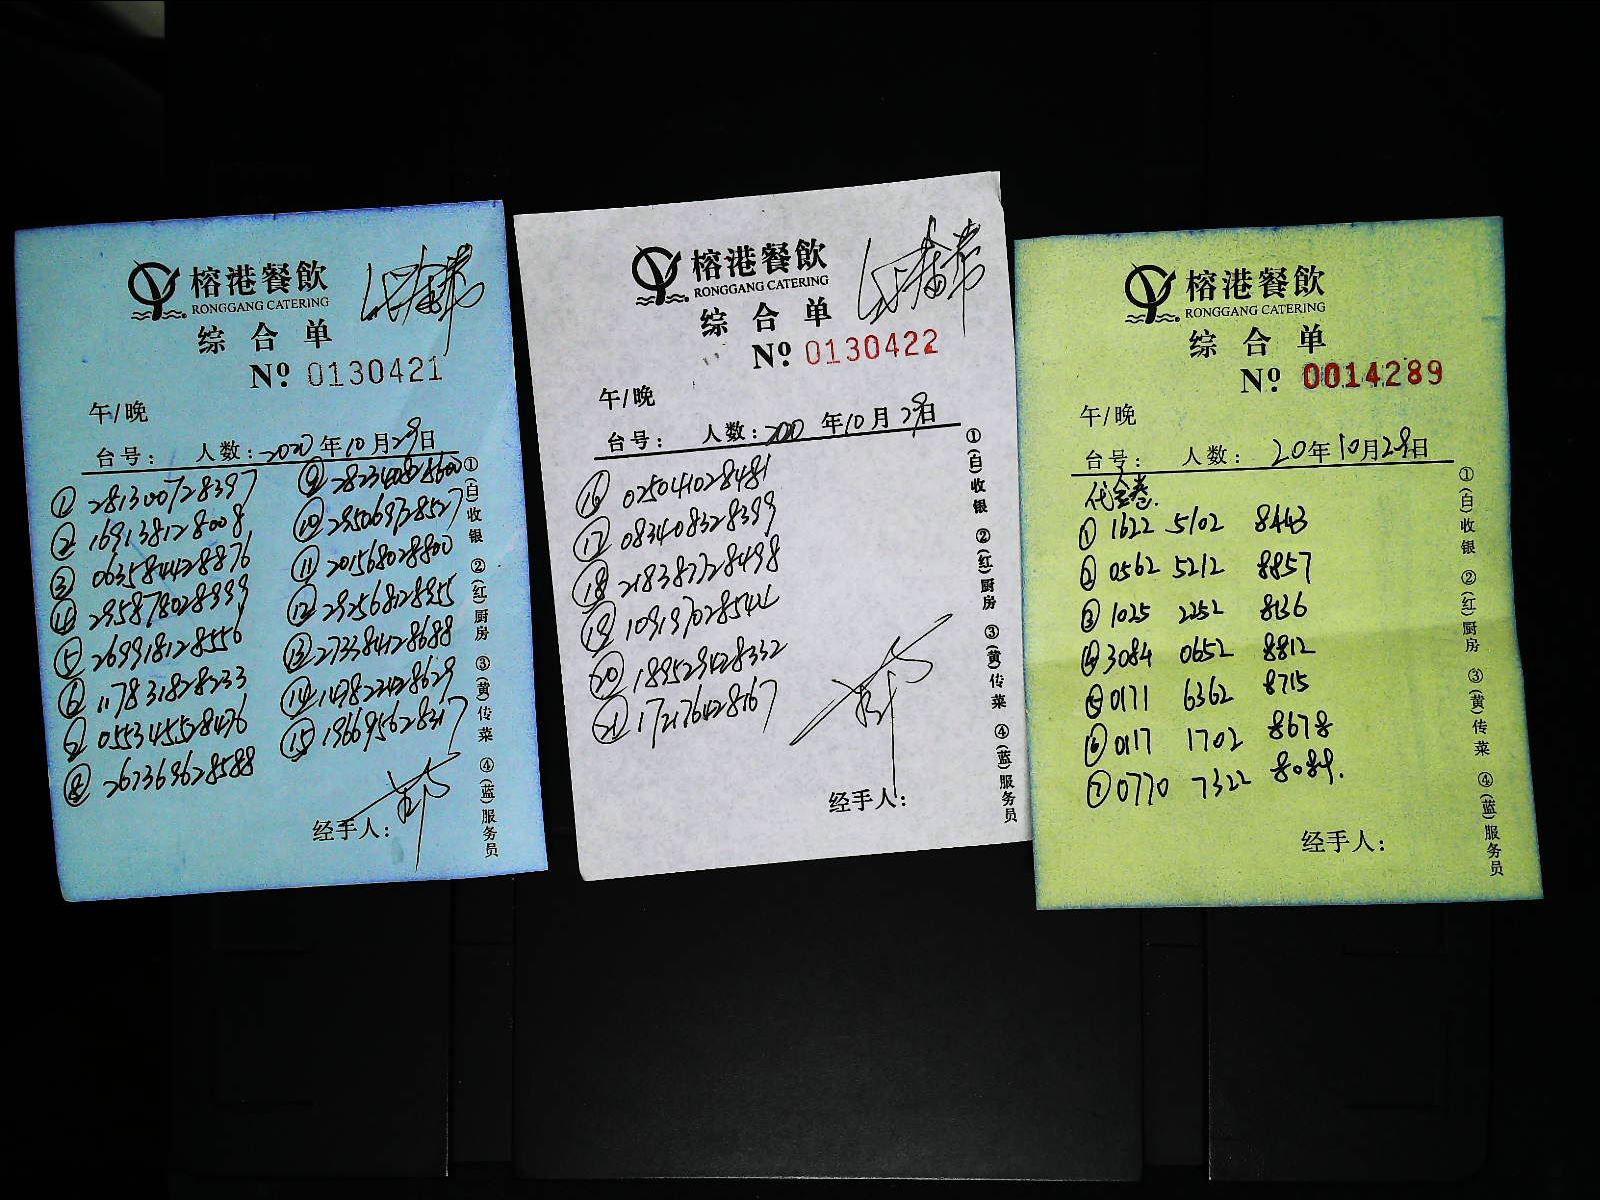 榕港餐飲
RONGGANG CATERING
综合单
№ 0130421
午/晚
台号： 人数：2020年10月29日
① 281300728397
② 169138128008
③ 063584428876
④ 295878028999
⑤ 269918128556
⑥ 117831828233
⑦ 055345528476
⑧ 267369628588
⑨ 282340828600
⑩ 295069728527
⑪ 201568028800
⑫ 292568128955
⑬ 273384428688
⑭ 149822428629
⑮ 196695628317
经手人：
①(白)收银 ②(红)厨房 ③(黄)传菜 ④(蓝)服务员
榕港餐飲
RONGGANG CATERING
综合单
№ 0130422
午/晚
台号： 人数：2020年10月29日
⑯ 025041028481
⑰ 083408328399
⑱ 218387728498
⑲ 109197028544
⑳ 189529428332
㉑ 172176428167
经手人：
①(白)收银 ②(红)厨房 ③(黄)传菜 ④(蓝)服务员
榕港餐飲
RONGGANG CATERING
综合单
№ 0014289
午/晚
台号： 人数： 20年10月29日
代金卷.
① 1622 5102 8443
② 0562 5212 8857
③ 1025 2252 8136
④ 3084 0652 8812
⑤ 0171 6362 8715
⑥ 0117 1702 8678
⑦ 0770 7322 8089.
经手人：
①(白)收银 ②(红)厨房 ③(黄)传菜 ④(蓝)服务员